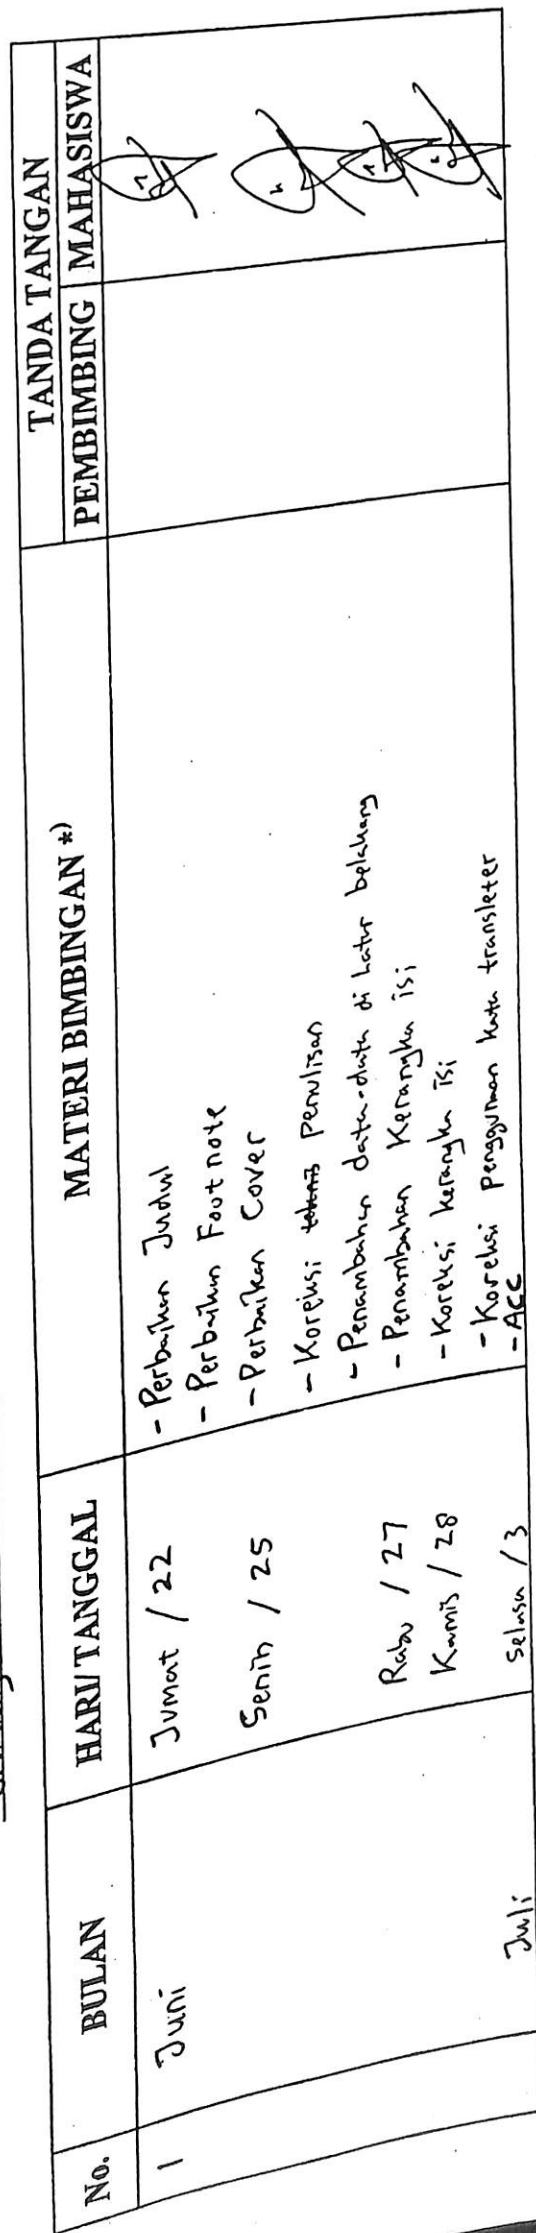 No. BULAN HARI/ TANGGAL MATERI BIMBINGAN *) TANDA TANGAN
PEMBIMBING MAHASISWA
1 Juni Jumat / 22 - Perbaikan Judul
- Perbaikan Footnote
Senin / 25 - Perbaikan Cover
- Koreksi penulisan
- Penambahan data-data di Latar belakang
Rabu / 27 - Penambahan Kerangka isi
Kamis / 28 - Koreksi kerangka isi
- Koreksi penggunaan kata transleter
Juli Selasa / 3 - ACC